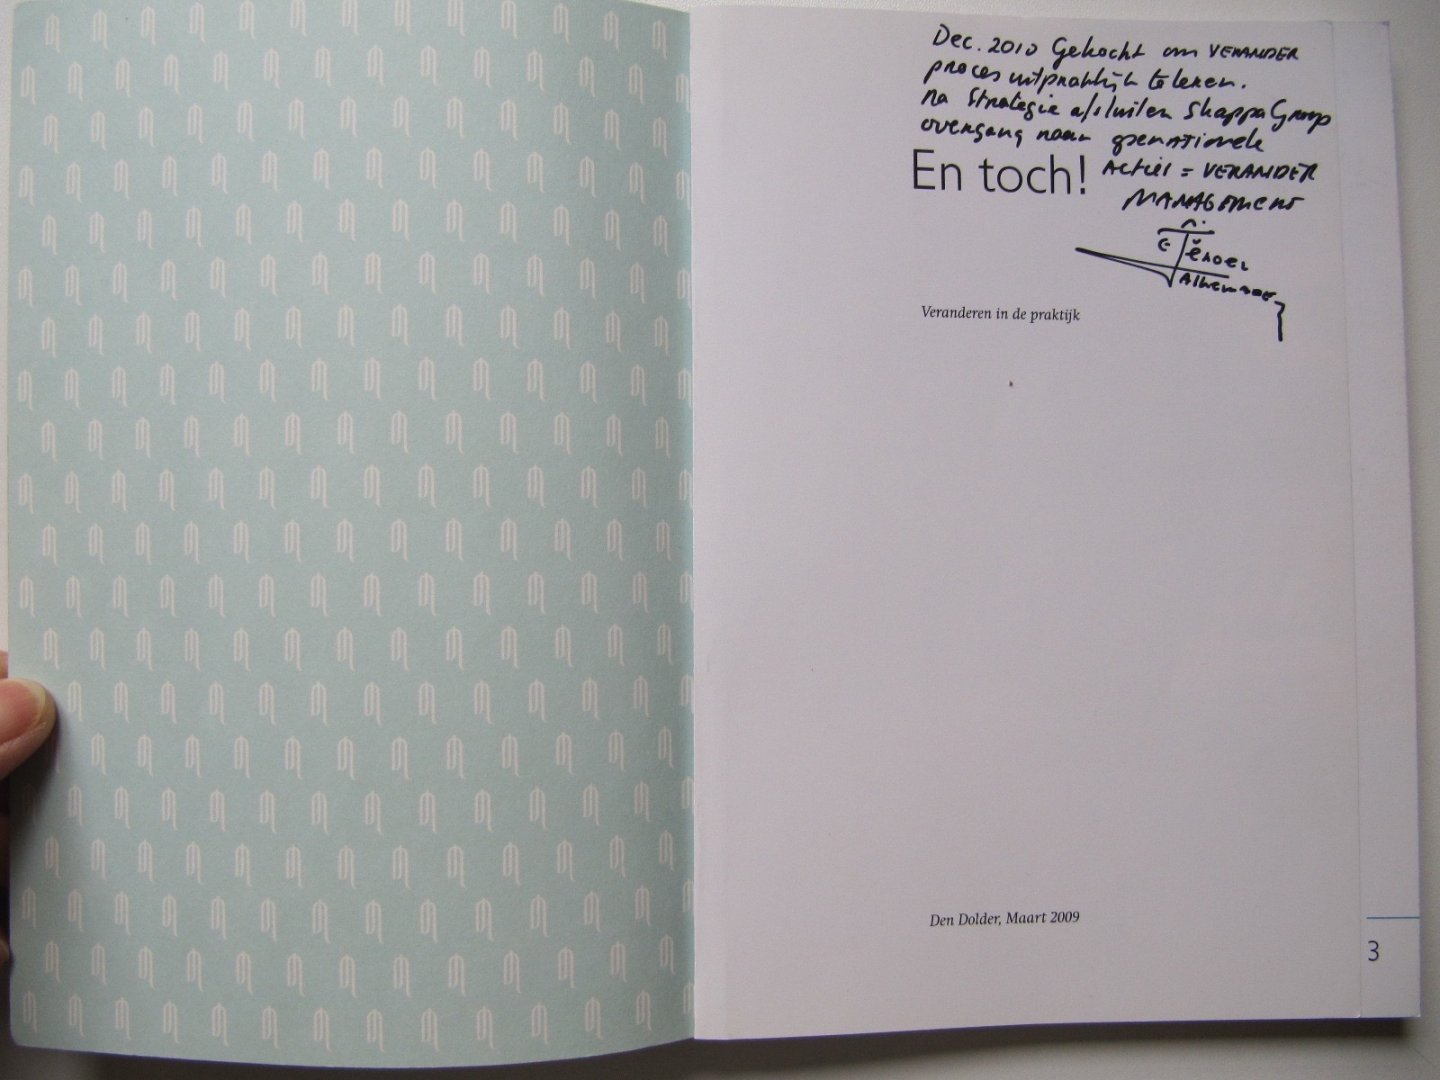 Dec. 2010 Gekocht om VERANDER
proces uit praktijk te leren.
na Strategie afsluiten Skappa Group
overgang naar operationele
En toch! Acties = VERANDER
MANAGEMENT
Veranderen in de praktijk
Den Dolder, Maart 2009
3